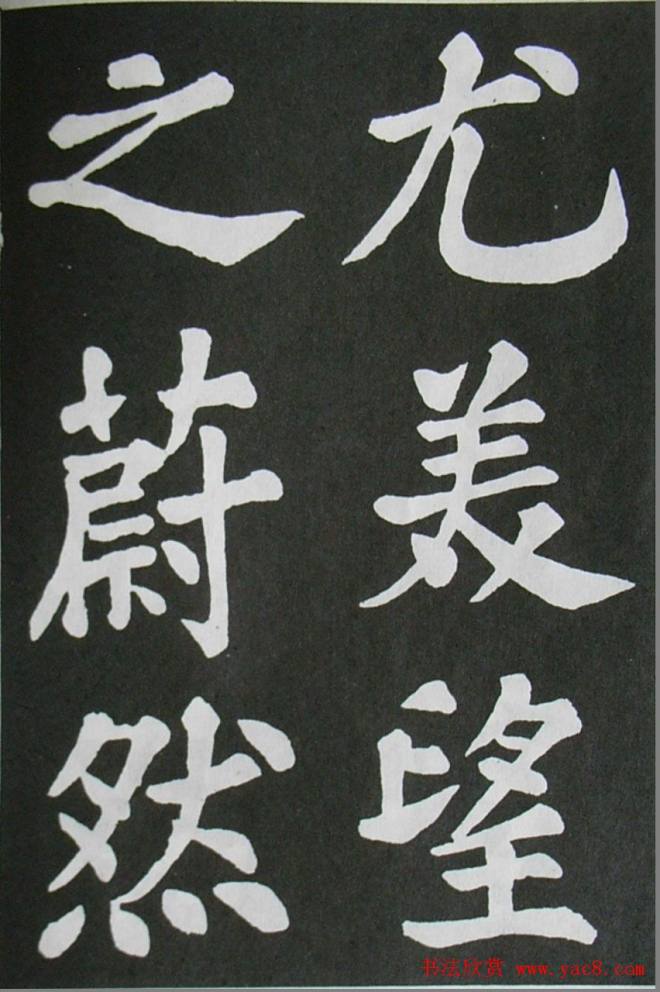 尤美望
之蔚然
书法欣赏 www.yac8.com